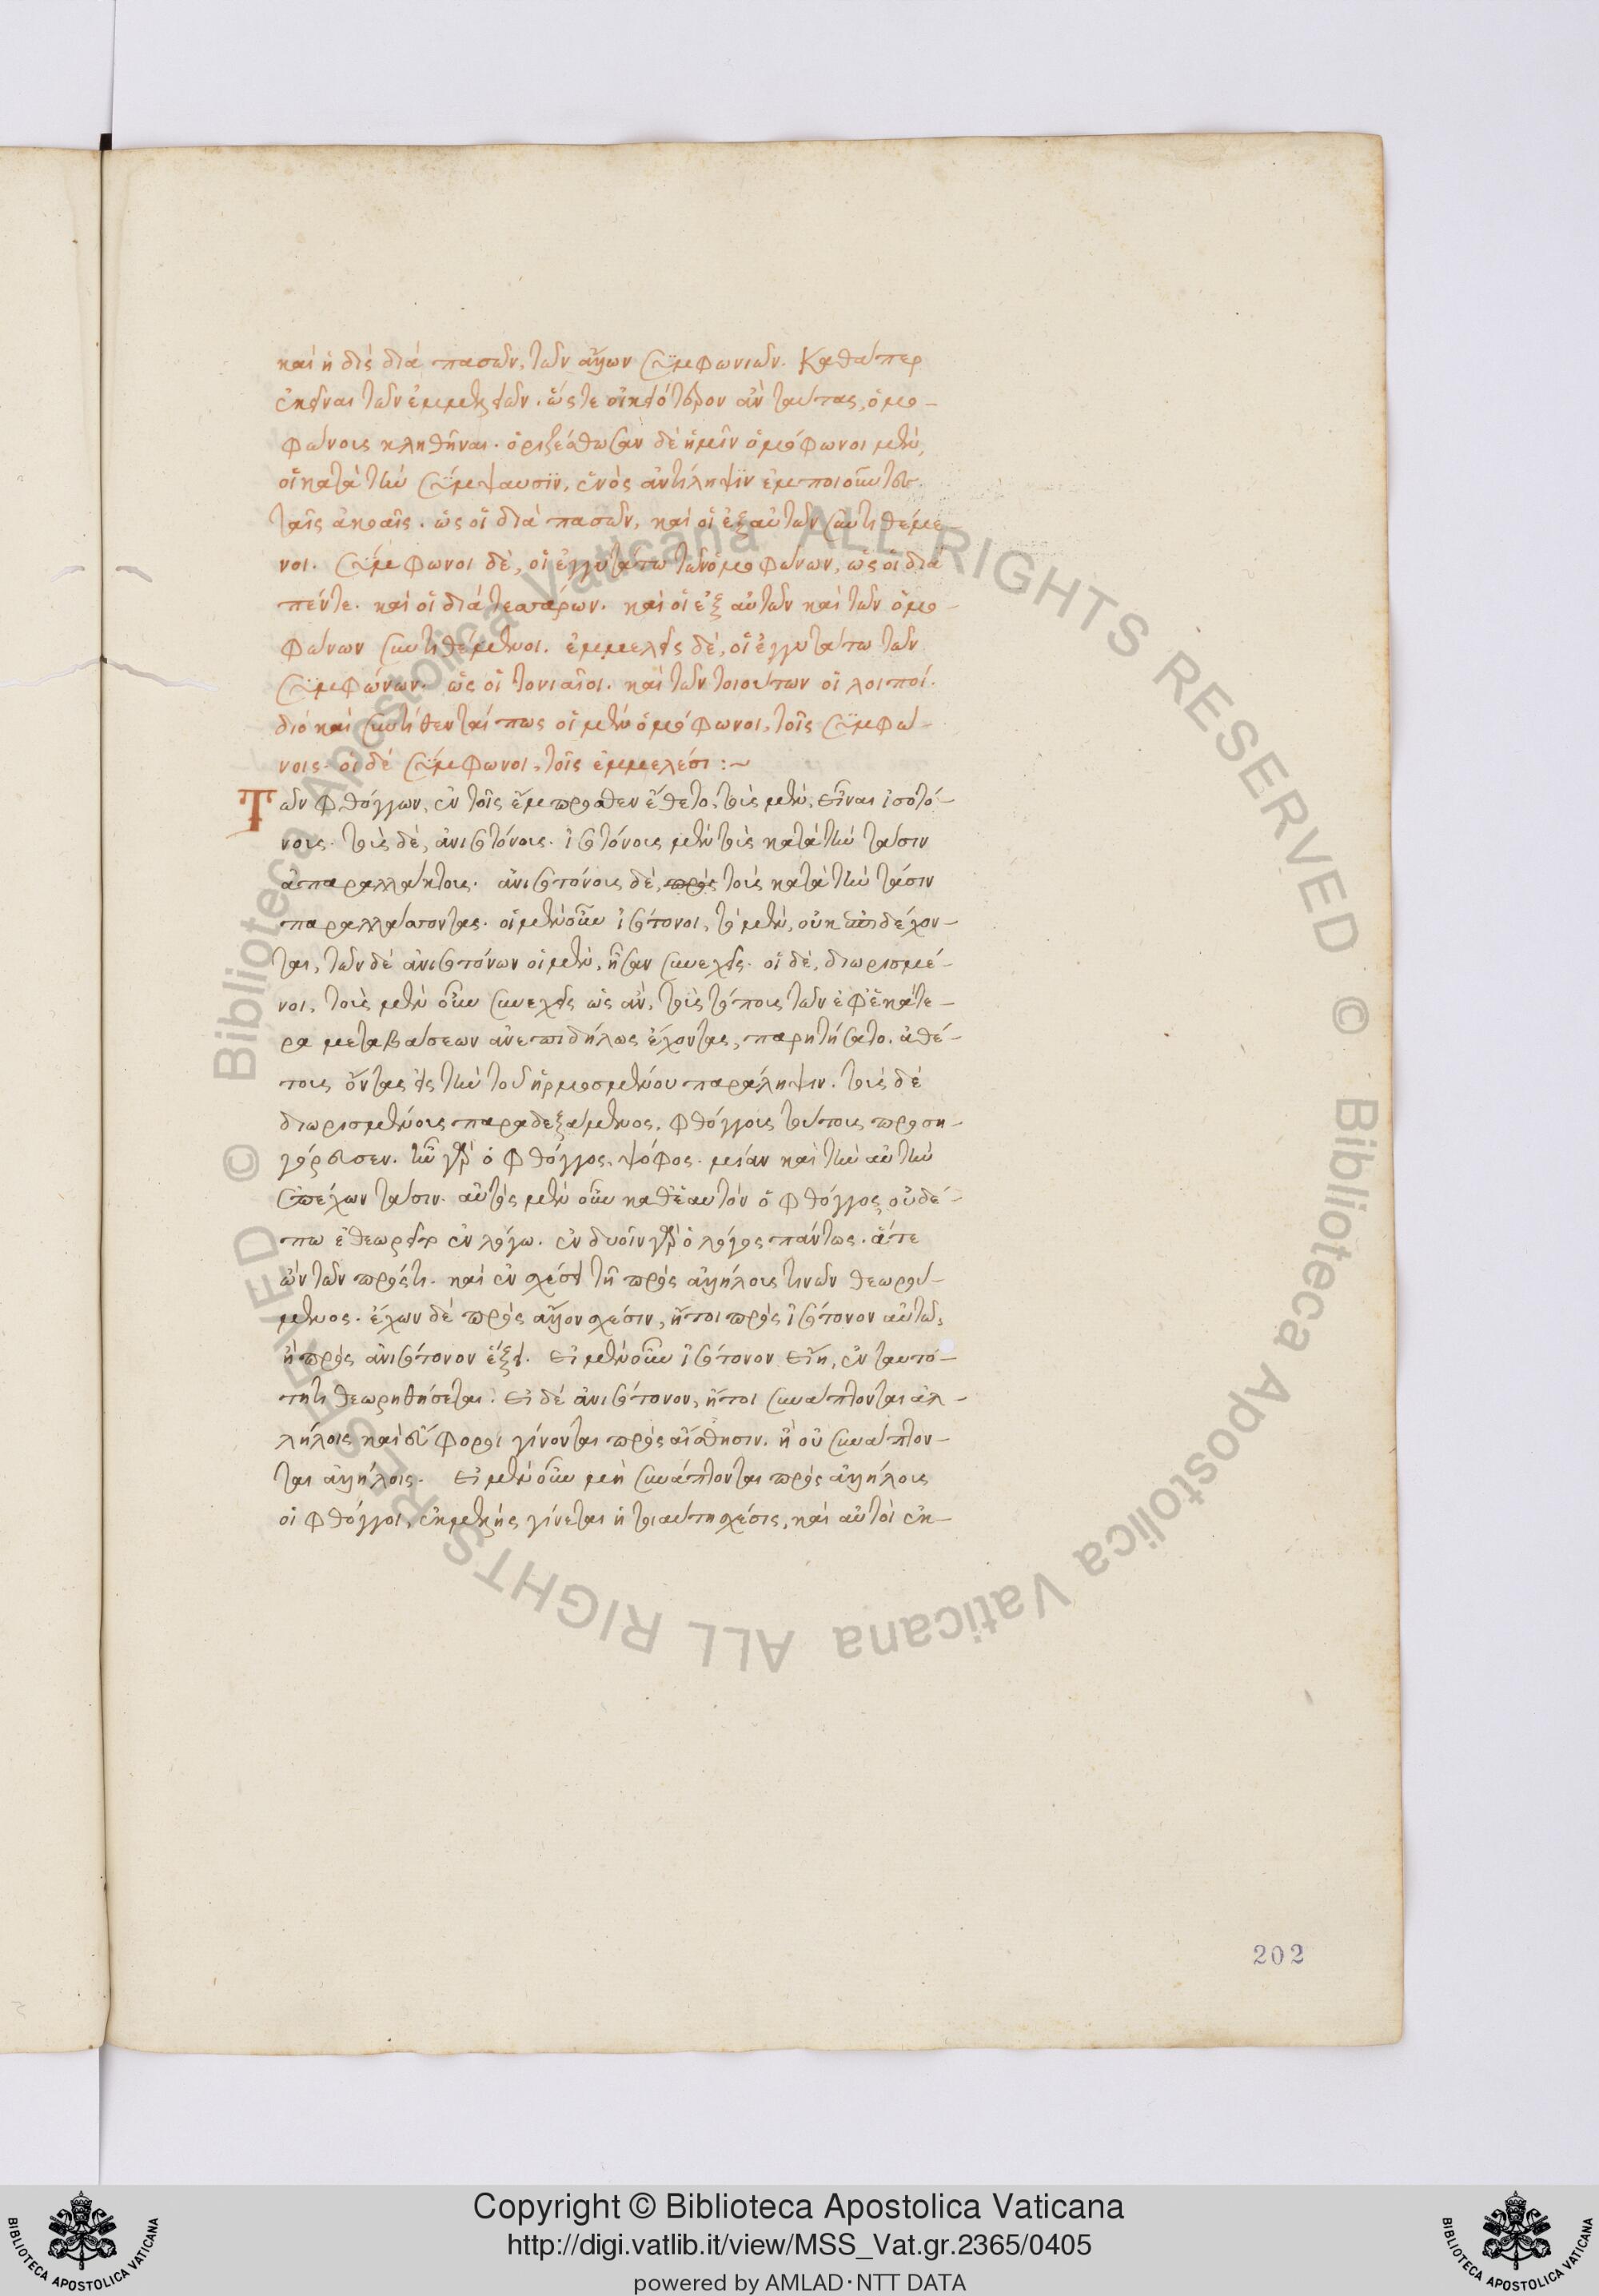 καὶ ἡ δὶς διὰ πασῶν, τῶν ἄλλων συμφωνιῶν. Καθάπερ
ἐκεῖναι τῶν ἐμμελειῶν. ὥστε οἰκειότερον ἂν ταύτας, ὁμο-
φώνους κληθῆναι. ὁριζέσθωσαν δὲ ἡμῖν ὁμόφωνοι μὲν,
οἱ κατὰ τὴν σύμψαυσιν, ἑνὸς ἀντίληψιν ἐμποιοῦντες
ταῖς ἀκοαῖς. ὡς οἱ διὰ πασῶν, καὶ οἱ ἐξ αὐτῶν συντιθέμε
νοι. σύμφωνοι δὲ, οἱ ἐγγυτάτω τῶν ὁμοφώνων, ὡς οἱ διὰ
πέντε. καὶ οἱ διὰ τεσσάρων. καὶ οἱ ἐξ αὐτῶν καὶ τῶν ὁμο-
φώνων συντιθέμενοι. ἐμμελεῖς δὲ, οἱ ἐγγυτάτω τῶν
συμφώνων. ὡς οἱ τονιαῖοι. καὶ τῶν τοιούτων οἱ λοιποί.
διὸ καὶ συντίθενταί πως οἱ μὲν ὁμόφωνοι, τοῖς συμφώ-
νοις. οἱ δὲ σύμφωνοι, τοῖς ἐμμελέσι :~
Τῶν φθόγγων, ἐν τοῖς ἔμπροσθεν ἔθετο, τοὺς μὲν, εἶναι ἰσοτό-
νους. τοὺς δὲ, ἀνισοτόνους. ἰσοτόνους μὲν τοὺς κατὰ τὴν τάσιν
ἀπαραλλάκτους. ἀνισοτόνους δὲ, πρὸς τοὺς κατὰ τὴν τάσιν
παραλλάσσοντας. οἱ μὲν οὖν ἰσότονοι, τὸ μὲν, οὐκ ἐπιδέχον-
ται, τῶν δὲ ἀνισοτόνων οἱ μὲν, ἦσαν συνεχεῖς. οἱ δὲ, διωρισμέ-
νοι, τοὺς μὲν οὖν συνεχεῖς ὡς ἂν, τοὺς τόπους τῶν ἐφ' ἑκάτε-
ρα μεταβάσεων ἀνεπιδήλως ἔχοντας, παρῃτήσατο. ἀθέ-
τους ὄντας εἰς τὴν τοῦ ἡρμοσμένου παράληψιν. τοὺς δὲ
διωρισμένους παραδεξάμενος, φθόγγους τούτους προση-
γόρευσεν. ἦν γὰρ ὁ φθόγγος, ψόφος. μίαν καὶ τὴν αὐτὴν
ἐπέχων τάσιν. αὐτὸς μὲν οὖν καθ' ἑαυτὸν ὁ φθόγγος οὐδέ-
πω ἐθεωρεῖτο ἐν λόγῳ. ἐν δυοῖν γὰρ ὁ λόγος πάντως. ἅτε
ὢν τῶν πρός τι. καὶ ἐν σχέσει τῇ πρὸς ἀλλήλους τινῶν θεωρού-
μενος. ἔχων δὲ πρὸς ἄλλον σχέσιν, ἤτοι πρὸς ἰσότονον αὐτῷ,
ἢ πρὸς ἀνισότονον ἕξει. εἰ μὲν οὖν ἰσότονον εἴη, ἐν ταυτό-
τητι θεωρηθήσεται. εἰ δὲ ἀνισότονον, ἤτοι συνάπτονται ἀλ-
λήλοις καὶ εὔφοροι γίνονται πρὸς αἴσθησιν. ἢ οὐ συνάπτον-
ται ἀλλήλοις. εἰ μὲν οὖν μὴ συνάπτονται πρὸς ἀλλήλους
οἱ φθόγγοι, ἐκμελὴς γίνεται ἡ τοιαύτη σχέσις, καὶ αὐτοὶ ἐκ-
202
© Biblioteca Apostolica Vaticana ALL RIGHTS RESERVED
© Biblioteca Apostolica Vaticana ALL RIGHTS RESERVED
Copyright © Biblioteca Apostolica Vaticana
http://digi.vatlib.it/view/MSS_Vat.gr.2365/0405
powered by AMLAD·NTT DATA
BIBLIOTECA APOSTOLICA VATICANA
BIBLIOTECA APOSTOLICA VATICANA